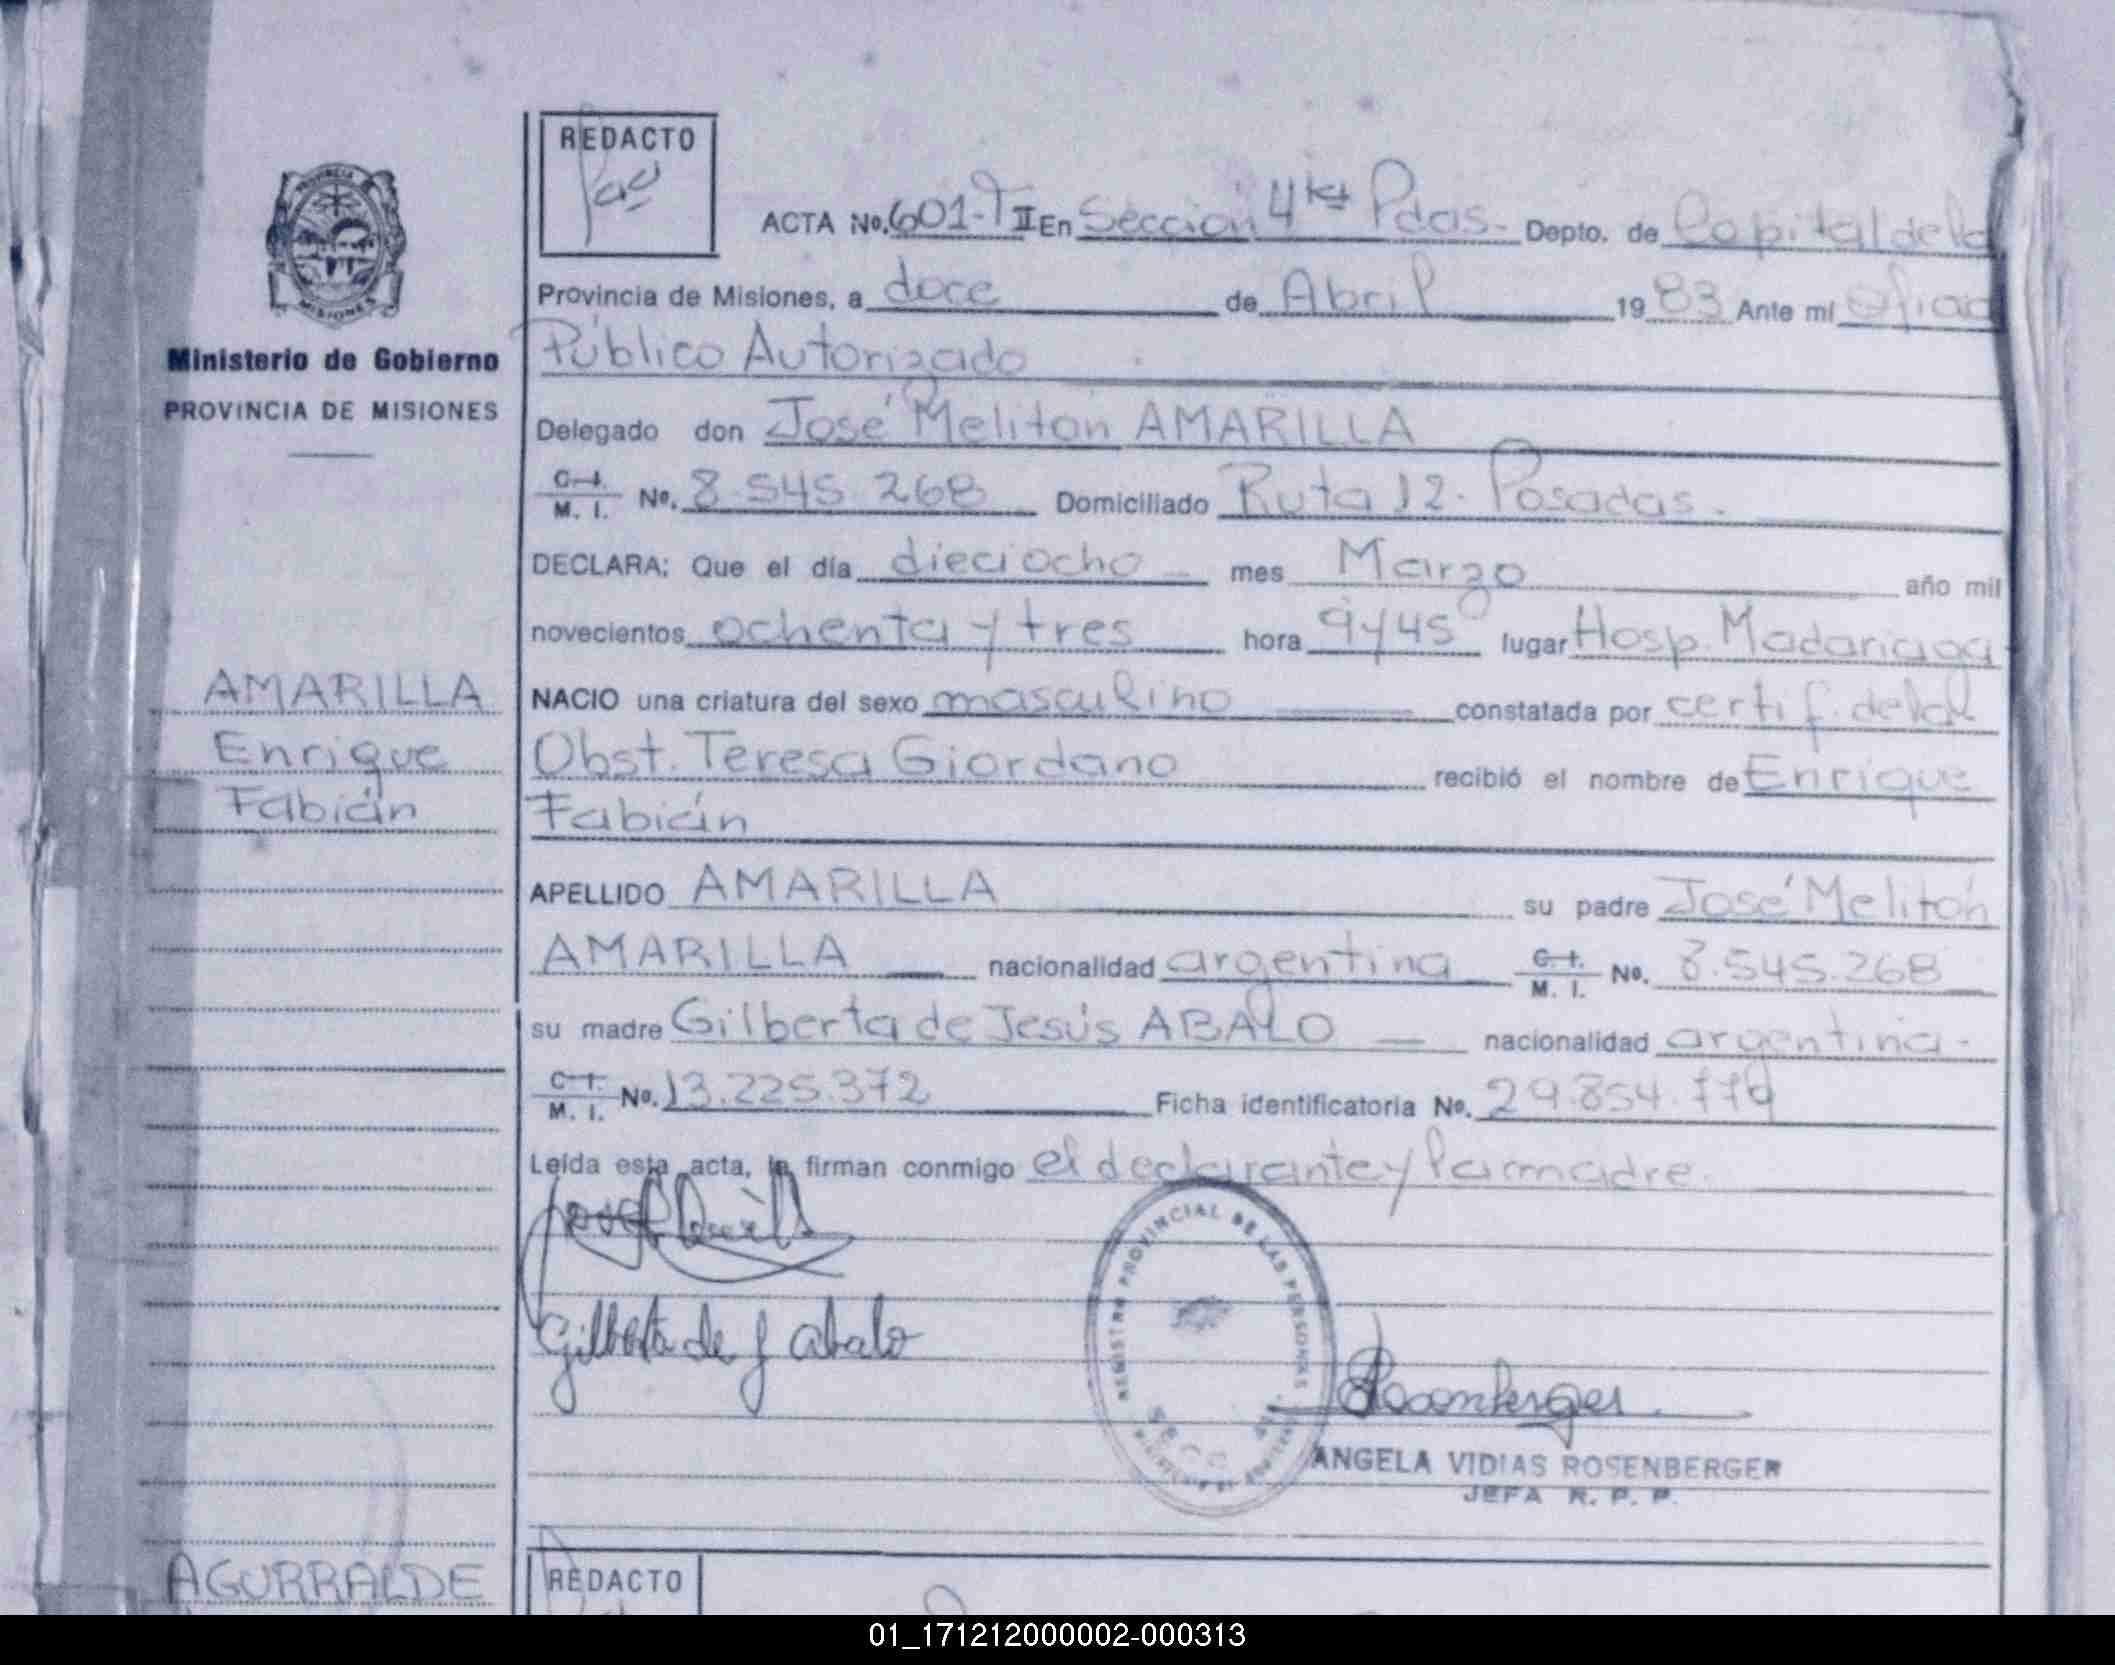 REDACTO
ACTA No. 601-T II En Sección 4ta Pdas. Depto. de Capital de la
Provincia de Misiones, a doce de Abril 1983 Ante mí Oficial
Público Autorizado
PROVINCIA DE MISIONES
Ministerio de Gobierno
PROVINCIA DE MISIONES
Delegado don José Melitón AMARILLA
C. I. M. I. No. 8.545.268 Domiciliado Ruta 12. Posadas.
DECLARA: Que el día dieciocho mes Marzo año mil
novecientos ochenta y tres hora 9 y 45 lugar Hosp. Madariaga
AMARILLA
Enrique
Fabián
NACIO una criatura del sexo masculino constatada por certif. de la
Obst. Teresa Giordano recibió el nombre de Enrique
Fabián
APELLIDO AMARILLA su padre José Melitón
AMARILLA nacionalidad argentina C. I. M. I. No. 8.545.268
su madre Gilberta de Jesús ABALO nacionalidad argentina.
C. I. M. I. No. 13.225.372 Ficha identificatoria No. 29.854.779
Leída esta acta, la firman conmigo el declarante y la madre.
Gilberta de J Abalo
REGISTRO PROVINCIAL DE LAS PERSONAS
SECC
Rosenberger
ANGELA VIDIAS ROSENBERGER
JEFA R. P. P.
AGURRALDE
REDACTO
01_171212000002-000313